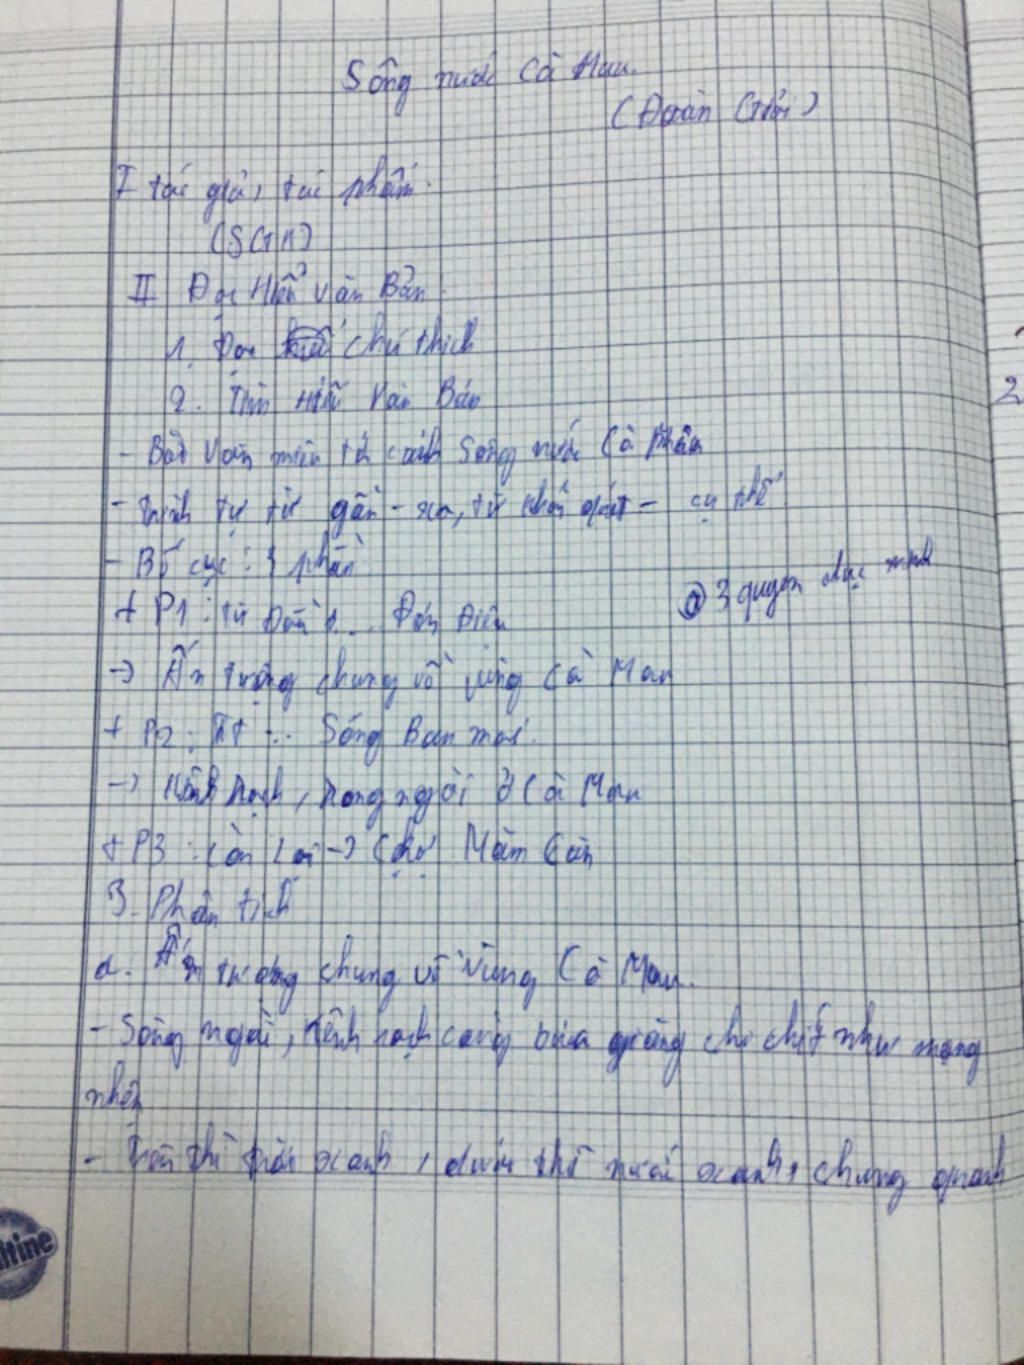 Sông nước Cà Mau.
(Đoàn Giỏi)
I tác giả, tác phẩm.
(SGK)
II Đọc Hiểu Văn Bản.
1. Đọc chú thích
2. Tìm Hiểu Văn Bản
- Bài Văn miêu tả cảnh Sông nước Cà Mau
- trình tự từ gần - xa, từ khái quát - cụ thể.
- Bố cục: 3 phần
@ 3 quyền
+ P1: từ Đầu ... Đơn Điệu
-> Ấn tượng chung về vùng Cà Mau
+ P2: ... Sóng Ban mai.
-> Kênh rạch, ở Cà Mau
+ P3: Còn Lại -> Chợ Năm Căn
3. Phân tích
a. Ấn tượng chung về Vùng Cà Mau.
- Sông ngòi, Kênh rạch càng bủa giăng chi chít như mạng
nhện
- Trên thì trời xanh, dưới thì nước xanh, chung quanh
2
ltine